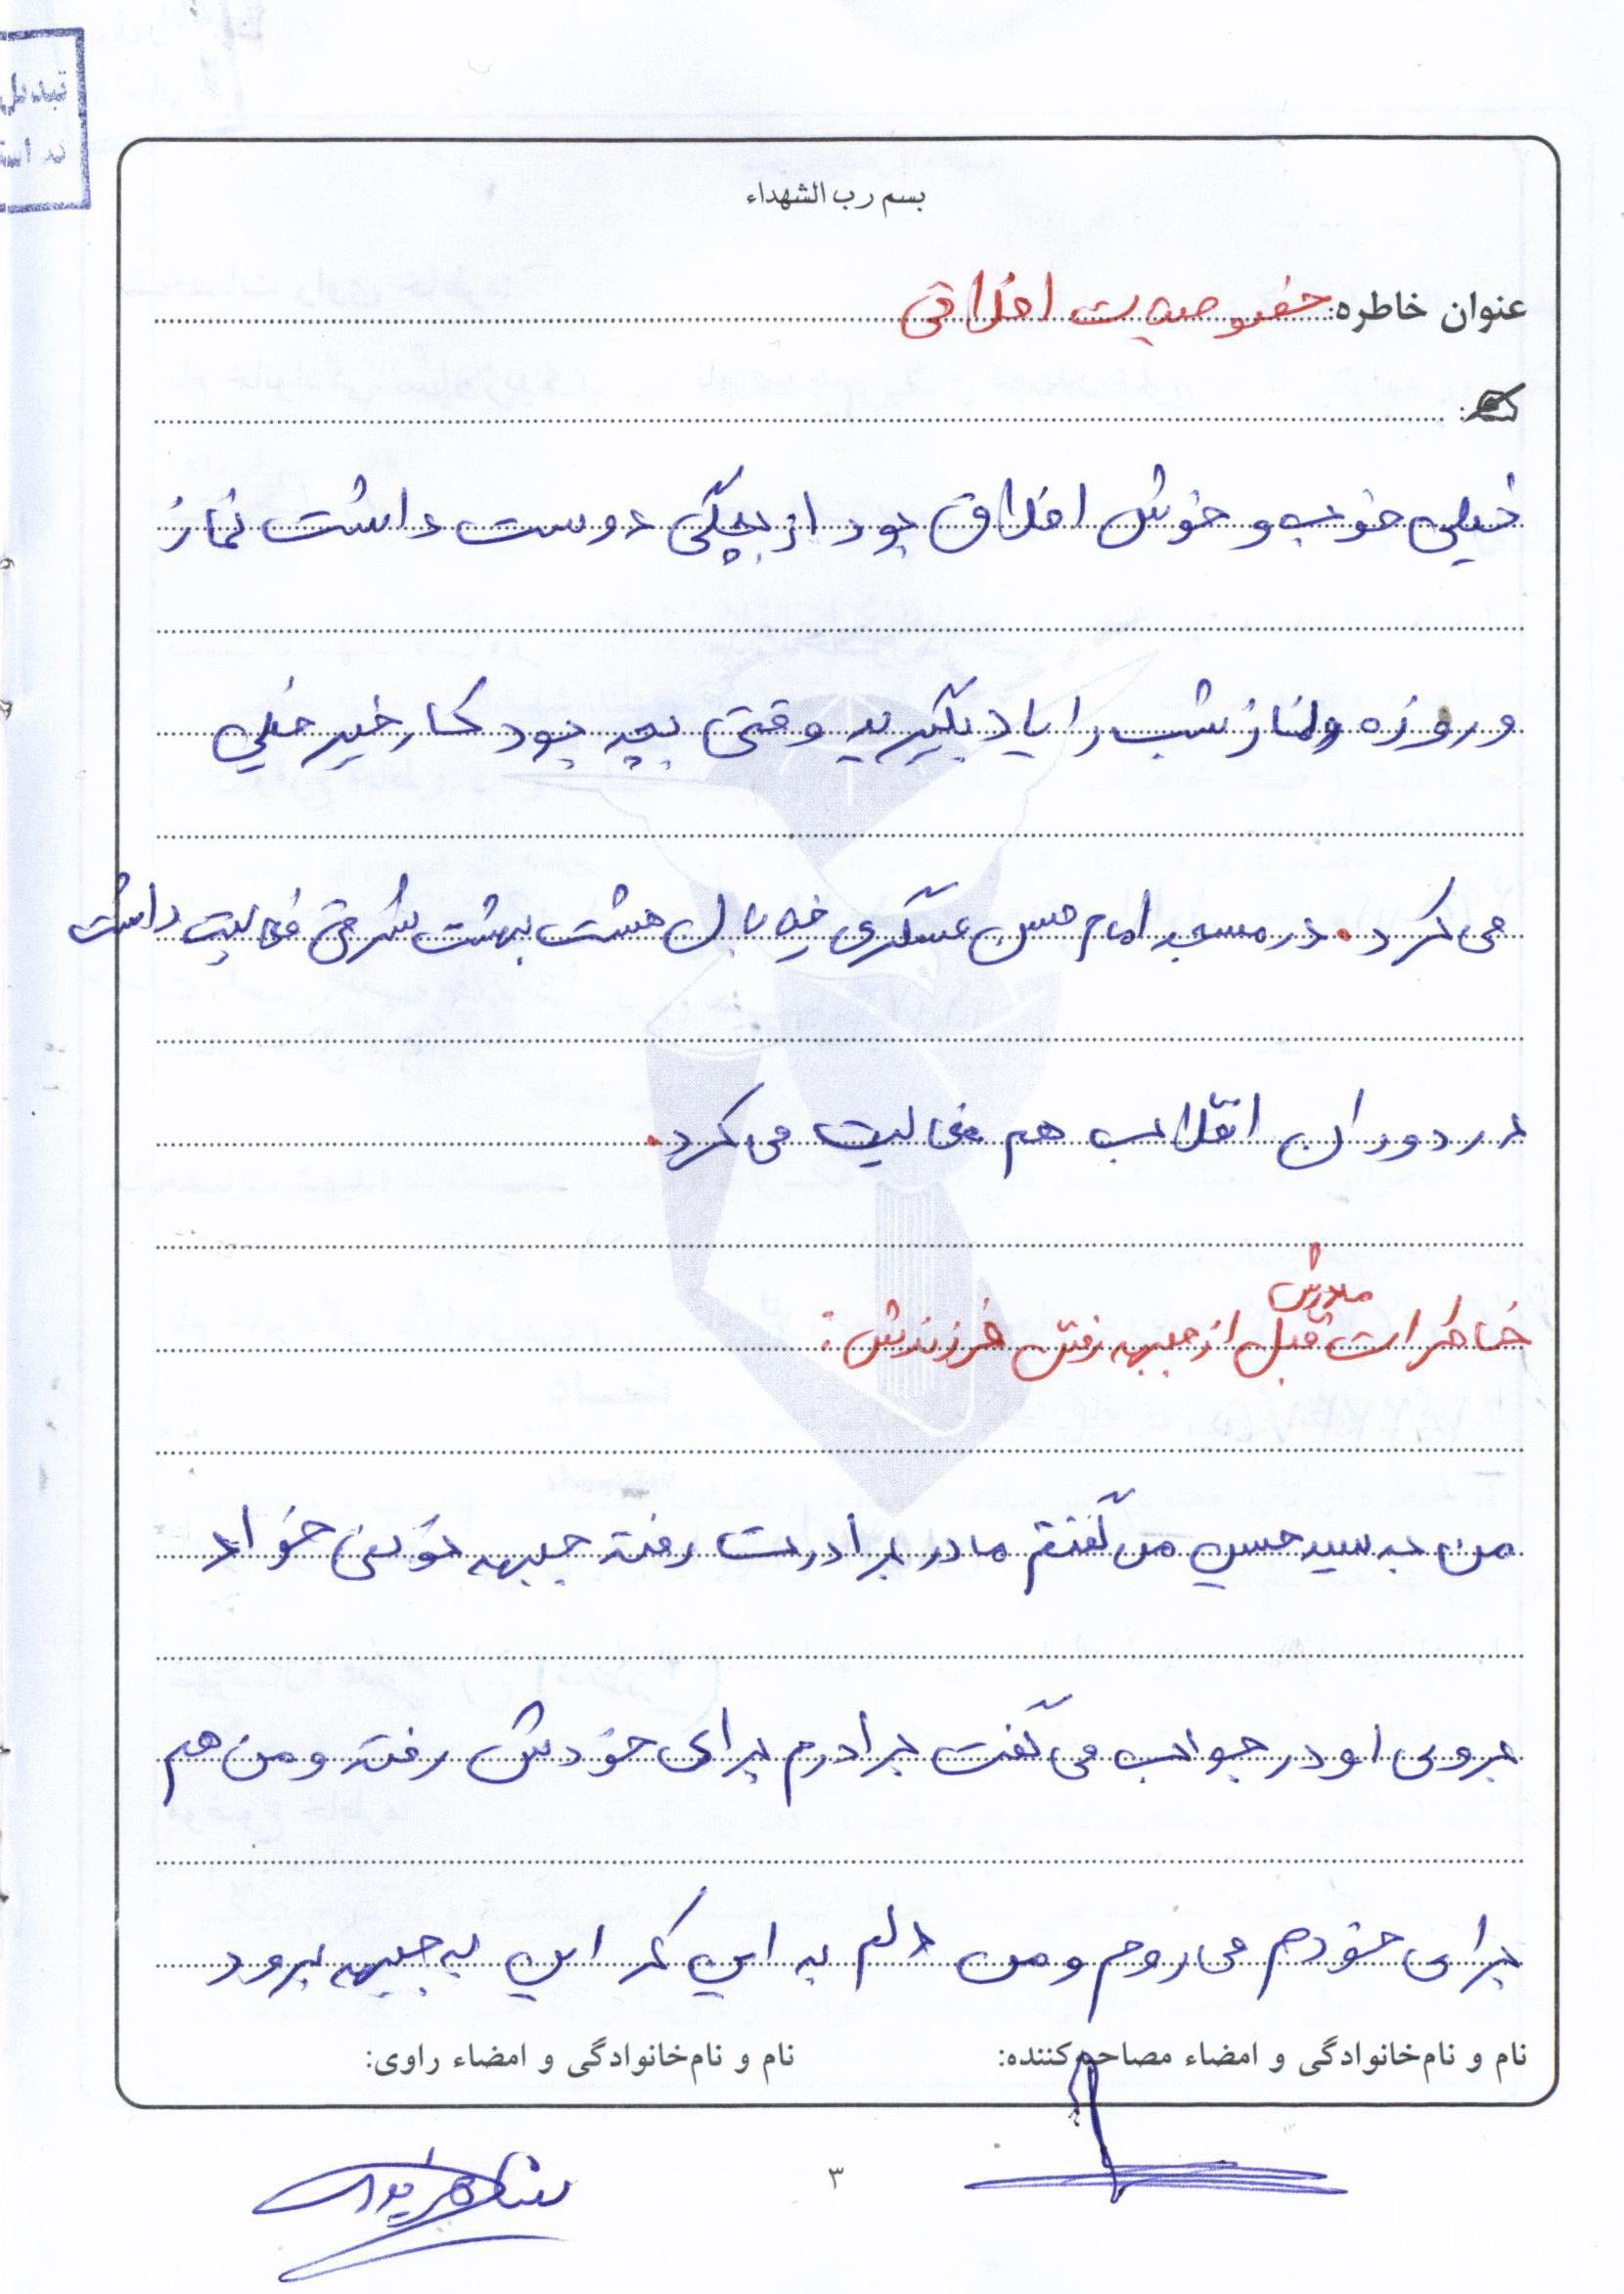 بسم رب الشهداء
عنوان خاطره: خصوصیت اخلاقی
خیلی خوب و خوش اخلاق بود از بچگی دوست داشت نماز
و روزه و نماز شب را یاد بگیرید وقتی بچه بود کار خیر خیلی
می کرد. در مسجد امام حسن عسگری خیابان هشت بهشت شرقی فعالیت داشت
در دوران انقلاب هم فعالیت می کرد.
مادرش
خاطرات قبل از جبهه رفتن فرزندش:
من به سید حسین می گفتم مادر برادرت رفته جبهه تو نمی خواد
بروی او در جواب می گفت برادرم برای خودش رفته و من هم
برای خودم می روم و من دلم به این که این به جبهه برود
نام و نام‌خانوادگی و امضاء مصاحبه‌کننده:
نام و نام‌خانوادگی و امضاء راوی:
۳